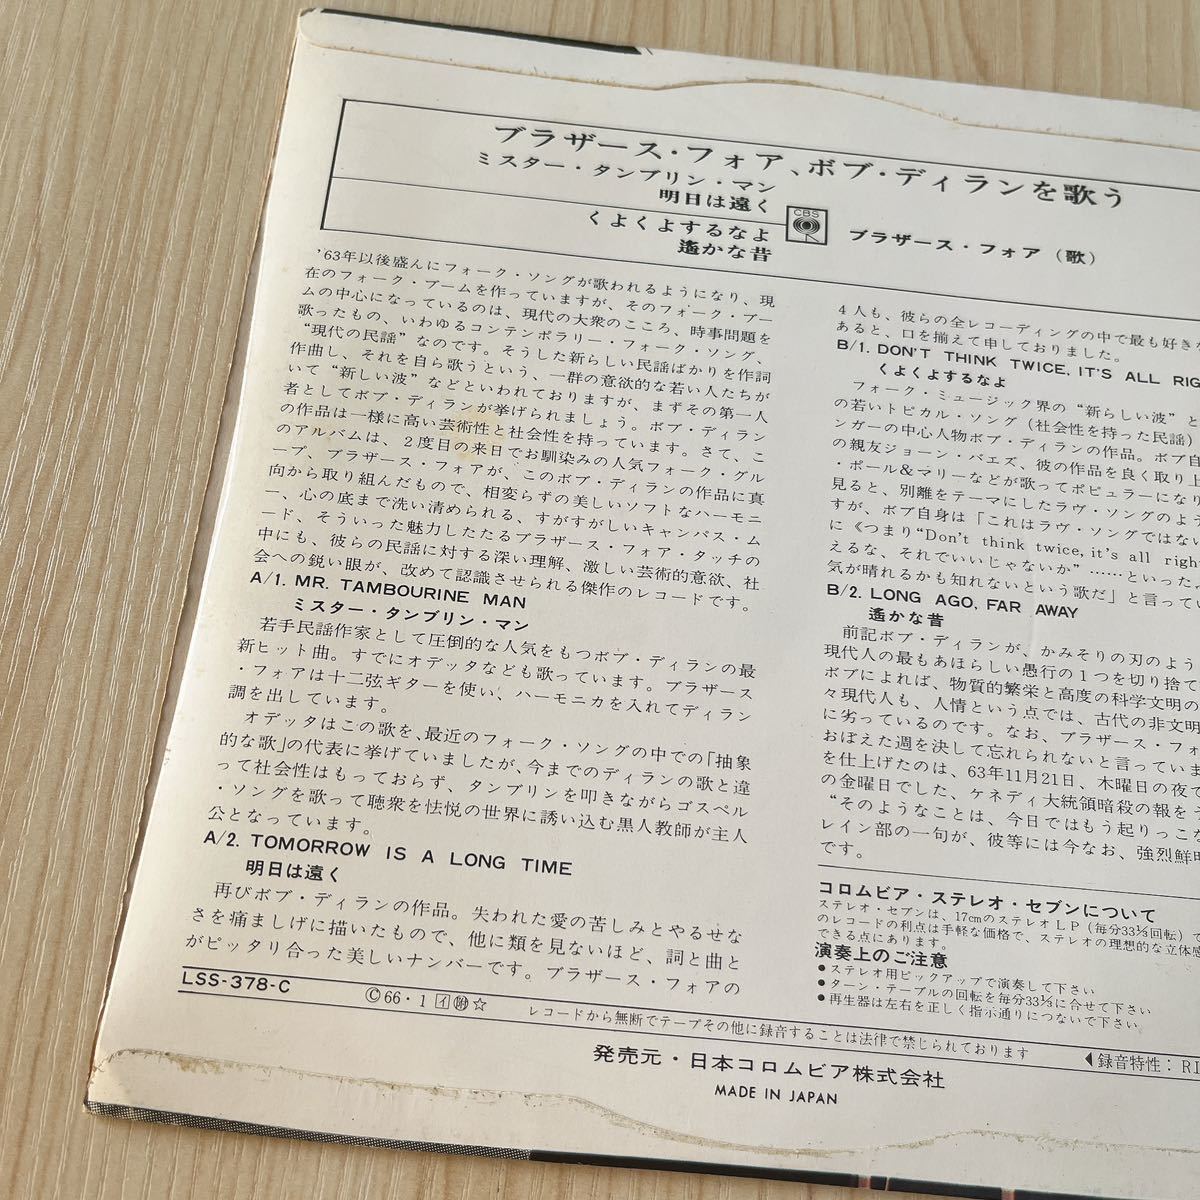 ブラザース・フォア、ボブ・ディランを歌う
ミスター・タンブリン・マン
明日は遠く
くよくよするなよ
遙かな昔
CBS
ブラザース・フォア(歌)
'63年以後盛んにフォーク・ソングが歌われるようになり、現
在のフォーク・ブームを作っていますが、そのフォーク・ブー
ムの中心になっているのは、現代の大衆のこころ、時事問題を
歌ったもの、いわゆるコンテンポラリー・フォーク・ソング、
“現代の民謡”なのです。そうした新らしい民謡ばかりを作詞
作曲し、それを自ら歌うという、一群の意欲的な若い人たちが
いて“新しい波”などといわれておりますが、まずその第一人
者としてボブ・ディランが挙げられましょう。ボブ・ディラン
の作品は一様に高い芸術性と社会性を持っています。さて、こ
のアルバムは、2度目の来日でお馴染みの人気フォーク・グル
ープ、ブラザース・フォアが、このボブ・ディランの作品に真
向から取り組んだもので、相変らずの美しいソフトなハーモニ
ー、心の底まで洗い清められる、すがすがしいキャンパス・ム
ード、そういった魅力したたるブラザース・フォア・タッチの
中にも、彼らの民謡に対する深い理解、激しい芸術的意欲、社
会への鋭い眼が、改めて認識させられる傑作のレコードです。
A/1. MR. TAMBOURINE MAN
ミスター・タンブリン・マン
若手民謡作家として圧倒的な人気をもつボブ・ディランの最
新ヒット曲。すでにオデッタなども歌っています。ブラザース
・フォアは十二弦ギターを使い、ハーモニカを入れてディラン
調を出しています。
オデッタはこの歌を、最近のフォーク・ソングの中での「抽象
的な歌」の代表に挙げていましたが、今までのディランの歌と違
って社会性はもっておらず、タンブリンを叩きながらゴスペル
・ソングを歌って聴衆を怯悦の世界に誘い込む黒人教師が主人
公となっています。
A/2. TOMORROW IS A LONG TIME
明日は遠く
再びボブ・ディランの作品。失われた愛の苦しみとやるせな
さを痛ましげに描いたもので、他に類を見ないほど、詞と曲と
がピッタリ合った美しいナンバーです。ブラザース・フォアの
4人も、彼らの全レコーディングの中で最も好きな
あると、口を揃えて申しておりました。
B/1. DON'T THINK TWICE, IT'S ALL RIG
くよくよするなよ
フォーク・ミュージック界の“新らしい波”と
の若いトピカル・ソング(社会性を持った民謡)
ンガーの中心人物ボブ・ディランの作品。ボブ自
の親友ジョーン・バエズ、彼の作品を良く取り上
・ポール&マリーなどが歌ってポピュラーになり
見ると、別離をテーマにしたラヴ・ソングのよう
すが、ボブ自身は「これはラヴ・ソングではない
に《つまり“Don't think twice, it's all right
えるな、それでいいじゃないか”……といった
気が晴れるかも知れないという歌だ」と言ってい
B/2. LONG AGO, FAR AWAY
遙かな昔
前記ボブ・ディランが、かみそりの刃のよう
現代人の最もあほらしい愚行の1つを切り捨て
ボブによれば、物質的繁栄と高度の科学文明の
々現代人も、人情という点では、古代の非文明
に劣っているのです。なお、ブラザース・フォ
おぼえた週を決して忘れられないと言っていま
を仕上げたのは、63年11月21日、木曜日の夜で
の金曜日でした、ケネディ大統領暗殺の報をう
“そのようなことは、今日ではもう起りっこな
レイン部の一句が、彼等には今なお、強烈鮮明
です。
コロムビア・ステレオ・セブンについて
ステレオ・セブンは、17cmのステレオLP(毎分33⅓回転)で
のレコードの利点は手軽な価格で、ステレオの理想的な立体感
できる点にあります。
演奏上のご注意
●ステレオ用ピックアップで演奏して下さい
●ターン・テーブルの回転を毎分33⅓に合せて下さい
●再生器は左右を正しく指示通りにつないで下さい。
LSS-378-C
©66・1 イ ☆
レコードから無断でテープその他に録音することは法律で禁じられております
◀録音特性: RI
発売元・日本コロムビア株式会社
MADE IN JAPAN